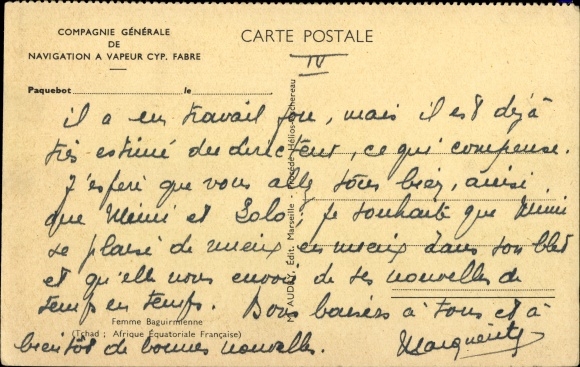 COMPAGNIE GÉNÉRALE
DE
NAVIGATION A VAPEUR CYP. FABRE
CARTE POSTALE
IV
Paquebot le
il a un travail fou, mais il est déjà
très estimé du directeur, ce qui compense.
J'espère que vous alle tous bien, ainsi
que Mimi et Lolo ; je souhaite que Mimi
se plaise de mieux en mieux dans son
et qu'elle nous envoie de ses nouvelles de
temps en temps. Bons baisers à tous et à
bientôt de bonnes nouvelles. Marguerite
Femme Baguirmienne
(Tchad ; Afrique Équatoriale Française)
AUDRY, Édit. Marseille - Procédé Hélios-Bachereau